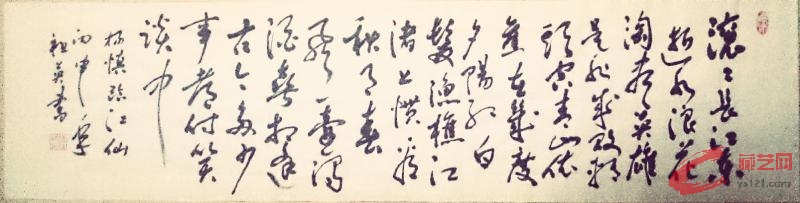 滚々长江东
逝水浪花
淘尽英雄
是非成败转
头空青山依
旧在几度
夕阳红白
髮渔樵江
渚上惯看
秋月春
风一壶浊
酒喜相逢
古今多少
事都付笑
谈中
杨慎临江仙
丙申
祖英书
藏艺网
ys121.com